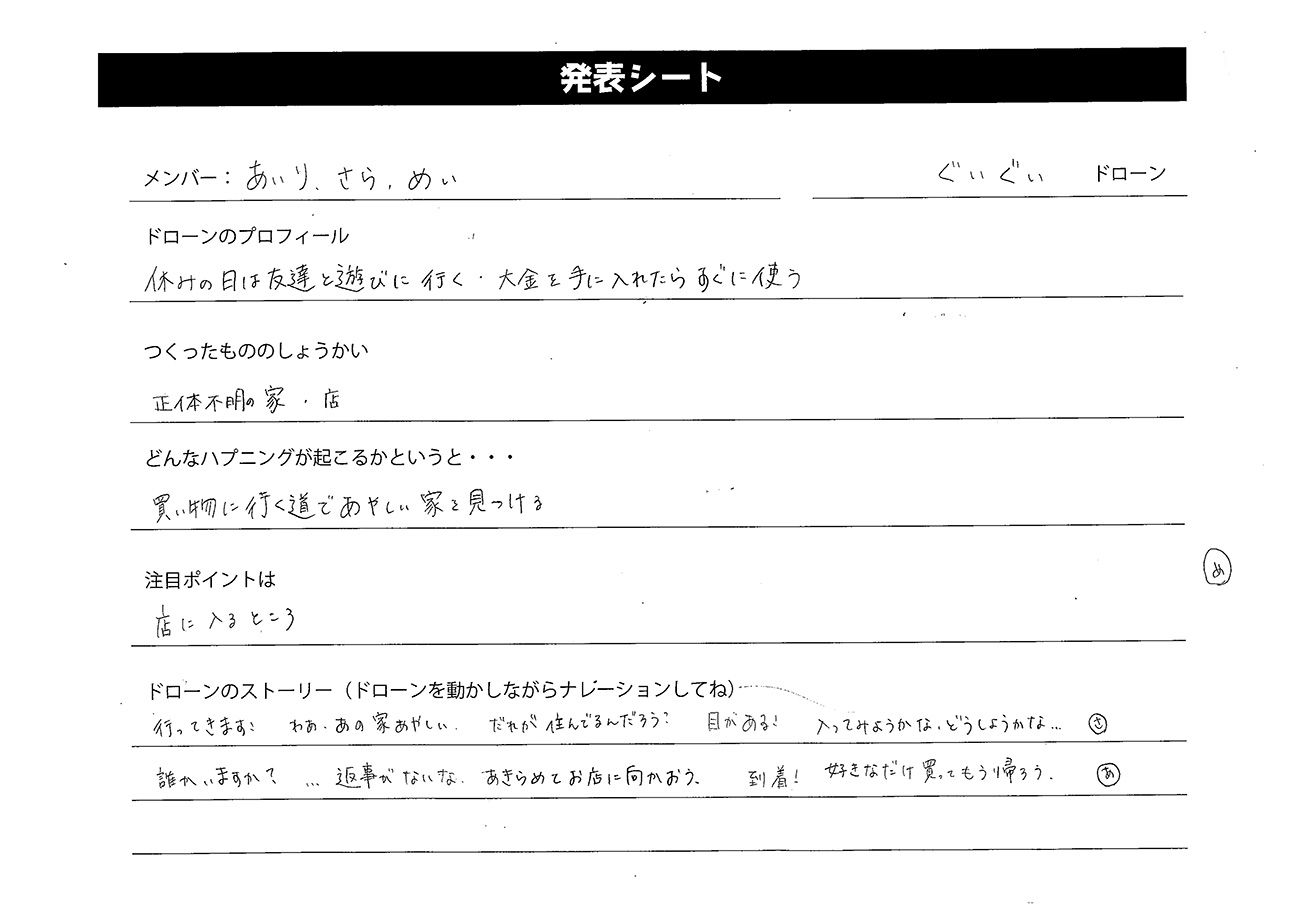 発表シート
メンバー： あいり、さら、めい ぐいぐい ドローン
ドローンのプロフィール
休みの日は友達と遊びに行く・大金を手に入れたらすぐに使う
つくったもののしょうかい
正体不明の家・店
どんなハプニングが起こるかというと・・・
買い物に行く道であやしい家を見つける
注目ポイントは
め
店に入るところ
ドローンのストーリー（ドローンを動かしながらナレーションしてね）
行ってきます！ わあ、あの家あやしい。 だれが住んでるんだろう？ 目がある！ 入ってみようかな、どうしようかな… さ
誰かいますか？ …返事がないな。 あきらめてお店に向かおう。 到着！ 好きなだけ買ってもう帰ろう。 あ